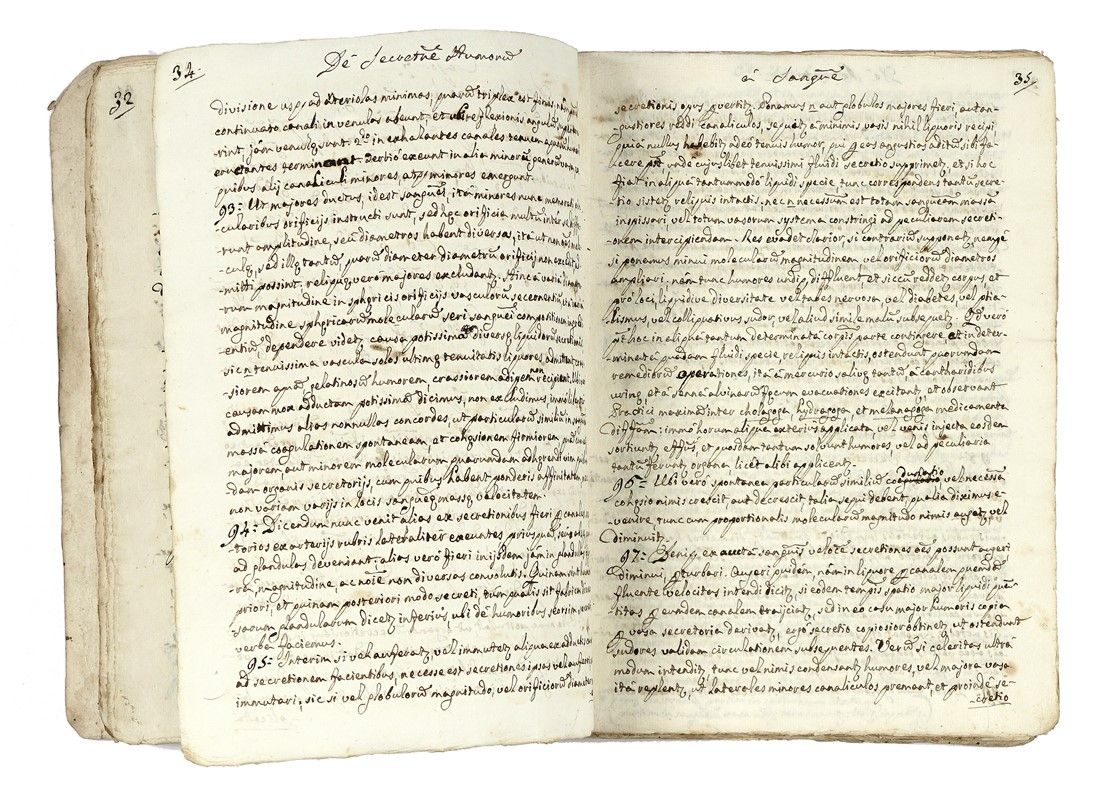 32
34.
De Secretne Humorū
divisione usqꝫ ad arteriolas minimas, quarū triplex est
continuato canali in venulas abeunt, et ubi reflexionis angulū
-rint, jām venulę sunt. 2do in exhalantes canales
er tantes terminant. Tertiō exeunt in alia minora
quibus alij canaliculi minores, atqꝫ minores emergunt.
93= Ut majores ductus, id est sanguēi, itā minores nunc
-cularibus orificijs instructi sunt, sed hęc orificia multū inter se
-runt amplitudine, seū diametros habent diversas, itā ut non
sed illę tantū, quarū diameter diametrū orificij non
-mitti possint, reliquę verō majores excludantꝫ. Hinc ā varia
rum magnitudine in sphęricis orificijs vasculorū secernentiū,
magnitudine sphęricarū molecularū seri sanguēi
entiū, dependere videtꝫ causa potissima diversę liquidorū
sic n tenuissima vascula solos ultimę tenuitatis liquores admittent
siorem aquā, gelatinosū humorem, crassiorem adipem non recipient.
causam mox adductam potissimā dicimus, non excludimus
admittimus alias nonnullas concordes, ut particularū similiū in
massa coagulationem spontaneam, et cohęsionem firmiorem,
majorem, aut minorem molecularum quarundam adhęrentiam
dam organis secretorijs, cum quibus habent ponderis affinitatem
non variam varijs in locis sanguēę massę velocitatem.
94= Dicendum nunc venit alias ex secretionibus fieri ꝑ canales
torios ex arterijs rubris lateraliter exeuntes priusquā,
ad glandulas deveniant: alias verō fieri in ijsdem jām in
magnitudine, ac noīe non diversas convolutis. Quinam
priori, et quinam posteriori modo secreti, tum qualis sit fabrica
sarum glandularum dicetꝫ inferius, ubi dē humoribus seorsim
verba faciemus.
95= Interim si vel auferatꝫ, vel immutetꝫ aliqua ex adductis
ad secretionem facientibus, necesse est secretiones ipsas vel auferri
immutari, sic si vel globulorū magnitudo, vel orificiorū diameter
ā Sanguē
35.
secretionis opus ꝑvertitꝫ. Ponamus n aut globulos majores fieri, aut an-
-gustiores reddi canaliculos, sequetꝫ ā minimis vasis nihil liquoris recipi,
quiā nullus habebitꝫ adeō tenuis humor, qui ꝑ eas angustias aditū sibi fa-
-cere pōt, unde cujuslibet tenuissimi fluidi secretio supprimetꝫ, et si hoc
fiat in aliquā tantummodō liquidi specie, tunc correspondens tantū secre-
-tio sistetꝫ reliquis intactis, nec n necessum est totam sanguēam massā
inspissari, vel totum vasorum systema constringi ad peculiarem secreti-
-onem intercipiendam. Res evadet clarior, si contrariū supponatꝫ, nempē
si ponamus minui molecularū magnitudinem, vel orificiorū diametros
ampliari, nām tunc humores undiqꝫ diffluent, et siccū reddetꝫ corpus, et
prō loci, liquidiqꝫ diversitate vel tabes nervosa, vel diabetes, vel ptia-
-lismus, vel colliquativus sudor, vel aliud simile malū subsequetꝫ. Id verō
pōt hoc in aliquā tantum determinatā corꝑis parte contingere, et in deter-
-minatā quadam fluidi specie, reliquis intactis, ostendunt quorundam
remediorū operationes, itā ā mercurio salivę tantū, ā cantharidibus
urinę, et ā senna alvinarū fęcum evacuationes excitantꝫ, et observant
Practici maximā inter cholagoga, hydragoga, et melanagoga medicamenta
diffiām: immō horum aliqua exterius applicata, vel venis injecta eosdem
sortiuntꝫ effūs, et quosdam tantum solvunt humores, vel ad peculiaria
tantū feruntꝫ organa, licēt alibi applicentꝫ.
96= Ubi verō spontanea particularū similiū coagulatio, vel necessāa
cohęsio nimis crescit, aut decrescit, talia sequi debent, qualia diximus e-
-venire, tunc cum proportionalis molecularū magnitudo nimis augetꝫ, vel
diminuitꝫ.
97= Deniqꝫ ex aucta sanguīs velocīe secretiones oēs possunt augeri
diminui, ꝑturbari. Augeri quidem, nām in liquore ꝑ canalem quemdā
fluente velocitas intendi dicitꝫ, si eodem tempīs spatio major liquidi quā-
titas ꝑ eundem canalem trajiciatꝫ, sed in eo casu major humoris copia
ꝑ vasa secretoria derivatꝫ, ergō secretio copiosior obtinetꝫ, ut ostendunt
sudores validam circulationem subsequentes. Verū si celeritas ultrā
modum intenditꝫ, tunc vel nimis condensantꝫ humores, vel majora vasa
itā replentꝫ, ut laterales minores canaliculos premant, et proindē se-
-cretio